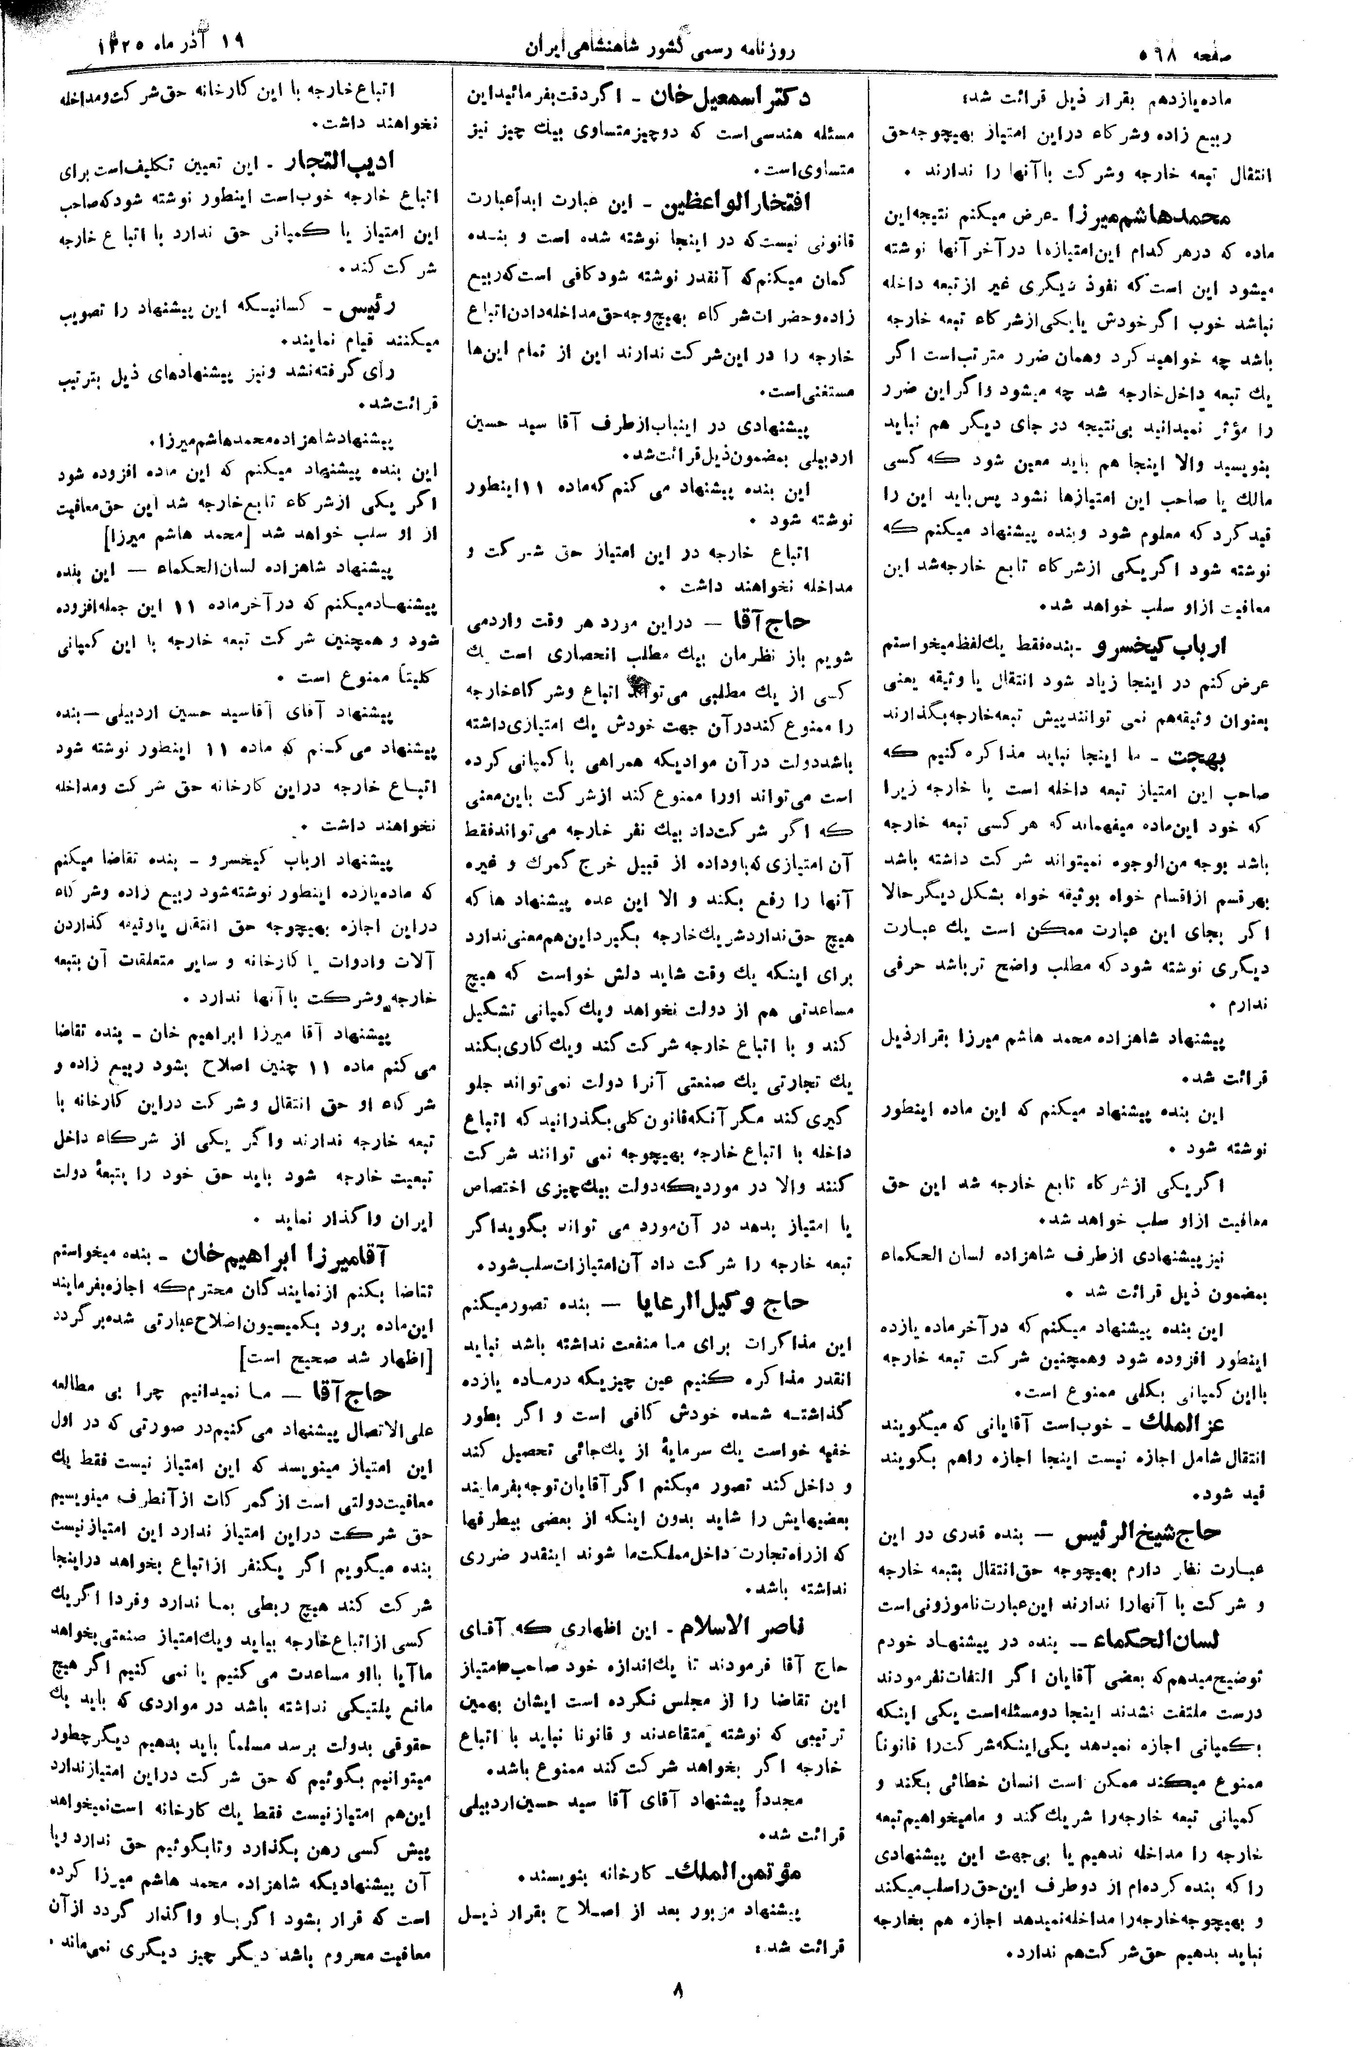 صفحه ۵۶۸
روزنامه رسمی کشور شاهنشاهی ایران
۱۹ آذر ماه ۱۳۲۵
ماده یازدهم بقرار ذیل قرائت شد؛
ربیع زاده وشرکاء دراین امتیاز بهیچوجه حق
انتقال تبعه خارجه وشرکت باآنها را ندارند .
محمد هاشم میرزا ـ عرض میکنم نتیجه این
ماده که درهر کدام این امتیازها در آخر آنها نوشته
میشود این است که نفوذ دیگری غیر از تبعه داخله
نباشد خوب اگر خودش یا یکی از شرکاء تبعه خارجه
باشد چه خواهید کرد وهمان ضرر مترتب است اگر
یك تبعه داخل خارجه شد چه میشود واگر این ضرر
را مؤثر نمیدانید بی‌نتیجه در جای دیگر هم نباید
بنویسید والا اینجا هم باید معین شود که کسی
مالك یا صاحب این امتیازها نشود پس باید این را
قید کرد که معلوم شود وبنده پیشنهاد میکنم که
نوشته شود اگر یکی از شرکاء تابع خارجه شد این
معافیت از او سلب خواهد شد.
ارباب کیخسرو ـ بنده فقط یك لفظ میخواستم
عرض کنم در اینجا زیاد شود انتقال یا وثیقه یعنی
بعنوان وثیقه هم نمی توانند پیش تبعه خارجه بگذارند
بهجت ـ ما اینجا نباید مذاکره کنیم که
صاحب این امتیاز تبعه داخله است یا خارجه زیرا
که خود این ماده میفهماند که هر کسی تبعه خارجه
باشد بوجه من‌الوجوه نمیتواند شرکت داشته باشد
بهر قسم از اقسام خواه بوثیقه خواه بشکل دیگر حالا
اگر بجای این عبارت ممکن است یك عبارت
دیگری نوشته شود که مطلب واضح تر باشد حرفی
ندارم .
پیشنهاد شاهزاده محمد هاشم میرزا بقرار ذیل
قرائت شد.
این بنده پیشنهاد میکنم که این ماده اینطور
نوشته شود .
اگر یکی از شرکاء تابع خارجه شد این حق
معافیت از او سلب خواهد شد.
نیز پیشنهادی از طرف شاهزاده لسان الحکماء
بمضمون ذیل قرائت شد .
این بنده پیشنهاد میکنم که در آخر ماده یازده
اینطور افزوده شود وهمچنین شرکت تبعه خارجه
بااین کمپانی بکلی ممنوع است.
عزالملك ـ خوب است آقایانی که میگویند
انتقال شامل اجازه نیست اینجا اجازه راهم بگویند
قید شود.
حاج شیخ الرئیس — بنده قدری در این
عبارت نظر دارم بهیچوجه حق انتقال بتبعه خارجه
و شرکت با آنها را ندارند این عبارت ناموزونی است
لسان الحکماء — بنده در پیشنهاد خودم
توضیح میدهم که بعضی آقایان اگر التفات نفرمودند
درست ملتفت نشدند اینجا دو مسئله است یکی اینکه
بکمپانی اجازه نمیدهد یکی اینکه شرکت را قانوناً
ممنوع میکند ممکن است انسان خطائی بکند و
کمپانی تبعه خارجه را شریك کند و مامیخواهیم تبعه
خارجه را مداخله ندهیم یا بی‌جهت این پیشنهادی
را که بنده کرده‌ام از دو طرف این حق را سلب میکند
و بهیچوجه خارجه را مداخله نمیدهد اجازه هم بخارجه
نباید بدهیم حق شرکت هم ندارد.
دکتر اسمعیل خان ـ اگر دقت بفرمائید این
مسئله هندسی است که دوچیز متساوی بیك چیز نیز
متساوی است.
افتخار الواعظین ـ این عبارت ابداً عبارت
قانونی نیست که در اینجا نوشته شده است و بنده
گمان میکنم که آنقدر نوشته شود کافی است که ربیع
زاده وحضرات شرکاء بهیچ وجه حق مداخله دادن اتباع
خارجه را در این شرکت ندارند این از تمام این‌ها
مستغنی است.
پیشنهادی در اینباب از طرف آقا سید حسین
اردبیلی بمضمون ذیل قرائت شد.
این بنده پیشنهاد می کنم که ماده ۱۱ اینطور
نوشته شود .
اتباع خارجه در این امتیاز حق شرکت و
مداخله نخواهند داشت .
حاج آقا — دراین مورد هر وقت وارد می
شویم باز نظرمان بیك مطلب انحصاری است یك
کسی از یك مطلبی می‌تواند اتباع وشرکاء خارجه
را ممنوع کند در آن جهت خودش یك امتیازی داشته
باشد دولت در آن موادیکه همراهی با کمپانی کرده
است می‌تواند اورا ممنوع کند از شرکت باین معنی
که اگر شرکت داد بیك نفر خارجه می تواند فقط
آن امتیازی که باو داده از قبیل خرج گمرك و غیره
آنها را رفع بکند و الا این عده پیشنهاد ها که
هیچ حق ندارد شریك خارجه بگیرد این هم معنی ندارد
برای اینکه یك وقت شاید دلش خواست که هیچ
مساعدتی هم از دولت نخواهد ویك کمپانی تشکیل
کند و با اتباع خارجه شرکت کند ویك کاری بکند
یك تجارتی یك صنعتی آنرا دولت نمی‌تواند جلو
گیری کند مگر آنکه قانون کلی بگذرانید که اتباع
داخله با اتباع خارجه بهیچوجه نمی توانند شرکت
کنند والا در موردیکه دولت بیك چیزی اختصاص
یا امتیاز بدهد در آن مورد می تواند بگوید اگر
تبعه خارجه را شرکت داد آن امتیازات سلب شود.
حاج وکیل الرعایا — بنده تصور میکنم
این مذاکرات برای ما منفعت نداشته باشد نباید
انقدر مذاکره کنیم عین چیزیکه درماده یازده
گذاشته شده خودش کافی است و اگر بطور
خفیه خواست یك سرمایهٔ از یك جائی تحصیل کند
و داخل کند تصور میکنم اگر آقایان توجه بفرمایند
بعضیهایش را شاید بدون اینکه از بعضی بیطرفها
که از راه تجارت داخل مملکت ما شوند اینقدر ضرری
نداشته باشد.
ناصر الاسلام ـ این اظهاری که آقای
حاج آقا فرمودند تا یك اندازه خود صاحب امتیاز
این تقاضا را از مجلس نکرده است ایشان بهمین
ترتیبی که نوشته متقاعدند و قانونا نباید با اتباع
خارجه اگر بخواهد شرکت کند ممنوع باشد.
مجدداً پیشنهاد آقای آقا سید حسین اردبیلی
قرائت شد.
مؤتمن الملك ـ کارخانه بنویسند.
پیشنهاد مزبور بعد از اصلاح بقرار ذیل
قرائت شد:
اتباع خارجه با این کارخانه حق شرکت ومداخله
نخواهند داشت.
ادیب التجار ـ این تعیین تکلیف است برای
اتباع خارجه خوب است اینطور نوشته شود که صاحب
این امتیاز یا کمپانی حق ندارد با اتباع خارجه
شرکت کند.
رئیس ـ کسانیکه این پیشنهاد را تصویب
میکنند قیام نمایند.
رأی گرفته نشد ونیز پیشنهادهای ذیل بترتیب
قرائت شد.
پیشنهاد شاهزاده محمد هاشم میرزا.
این بنده پیشنهاد میکنم که این ماده افزوده شود
اگر یکی از شرکاء تابع خارجه شد این حق معافیت
از او سلب خواهد شد [محمد هاشم میرزا]
پیشنهاد شاهزاده لسان الحکماء — این بنده
پیشنهاد میکنم که در آخر ماده ۱۱ این جمله افزوده
شود و همچنین شرکت تبعه خارجه با این کمپانی
کلیتاً ممنوع است .
پیشنهاد آقای آقا سید حسین اردبیلی — بنده
پیشنهاد می‌کنم که ماده ۱۱ اینطور نوشته شود
اتباع خارجه در این کارخانه حق شرکت ومداخله
نخواهند داشت .
پیشنهاد ارباب کیخسرو — بنده تقاضا میکنم
که ماده یازده اینطور نوشته شود ربیع زاده وشرکاء
دراین اجازه بهیچوجه حق انتقال یا وثیقه گذاردن
آلات وادوات یا کارخانه و سایر متعلقات آن بتبعه
خارجه وشرکت باآنها ندارد .
پیشنهاد آقا میرزا ابراهیم خان — بنده تقاضا
می کنم ماده ۱۱ چنین اصلاح بشود ربیع زاده و
شرکاء او حق انتقال وشرکت دراین کارخانه با
تبعه خارجه ندارند واگر یکی از شرکاء داخل
تبعیت خارجه شود باید حق خود را بتبعهٔ دولت
ایران واگذار نماید .
آقامیرزا ابراهیم خان ـ بنده میخواستم
تقاضا بکنم از نمایندگان محترم که اجازه بفرمایند
این ماده برود بکمیسیون اصلاح عبارتی شده برگردد
[اظهار شد صحیح است]
حاج آقا — ما نمیدانیم چرا بی مطالعه
علی‌الاتصال پیشنهاد می کنیم در صورتی که در اول
این امتیاز مینویسد که این امتیاز نیست فقط یك
معافیت دولتی است از گمرکات از آنطرف مینویسیم
حق شرکت دراین امتیاز ندارد این امتیاز نیست
بنده میگویم اگر یکنفر از اتباع بخواهد دراینجا
شرکت کند هیچ ربطی بما ندارد وفردا اگر یك
کسی از اتباع خارجه بیاید ویك امتیاز صنعتی بخواهد
ماآیا بااو مساعدت می کنیم یا نمی کنیم اگر هیچ
مانع پلتیکی نداشته باشد در مواردی که باید یك
حقوقی بدولت برسد مسلماً باید بدهیم دیگر چطور
میتوانیم بگوئیم که حق شرکت دراین امتیاز ندارد
این هم امتیاز نیست فقط یك کارخانه است نمیخواهد
پیش کسی رهن بگذارد وتابگوئیم حق ندارد ویا
آن پیشنهادیکه شاهزاده محمد هاشم میرزا کرده
است که قرار بشود اگر باو واگذار گردد از آن
معافیت محروم باشد دیگر چیز دیگری نمی‌ماند .
۸